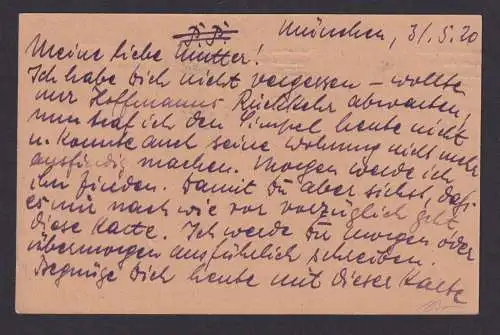 München, 31/5.20
Meine liebe Mutter!
Ich habe Dich nicht vergessen – wollte
nur Hoffmanns Rückkehr abwarten,
nun traf ich den Simpel heute nicht
u. konnte auch seine Wohnung nicht mehr
ausfindig machen. Morgen werde ich
ihn finden. Damit Du aber siehst, daß
es mir nach wie vor vorzüglich geht
diese Karte. Ich werde Dir morgen oder
übermorgen ausführlich schreiben.
Begnüge Dich heute mit dieser Karte